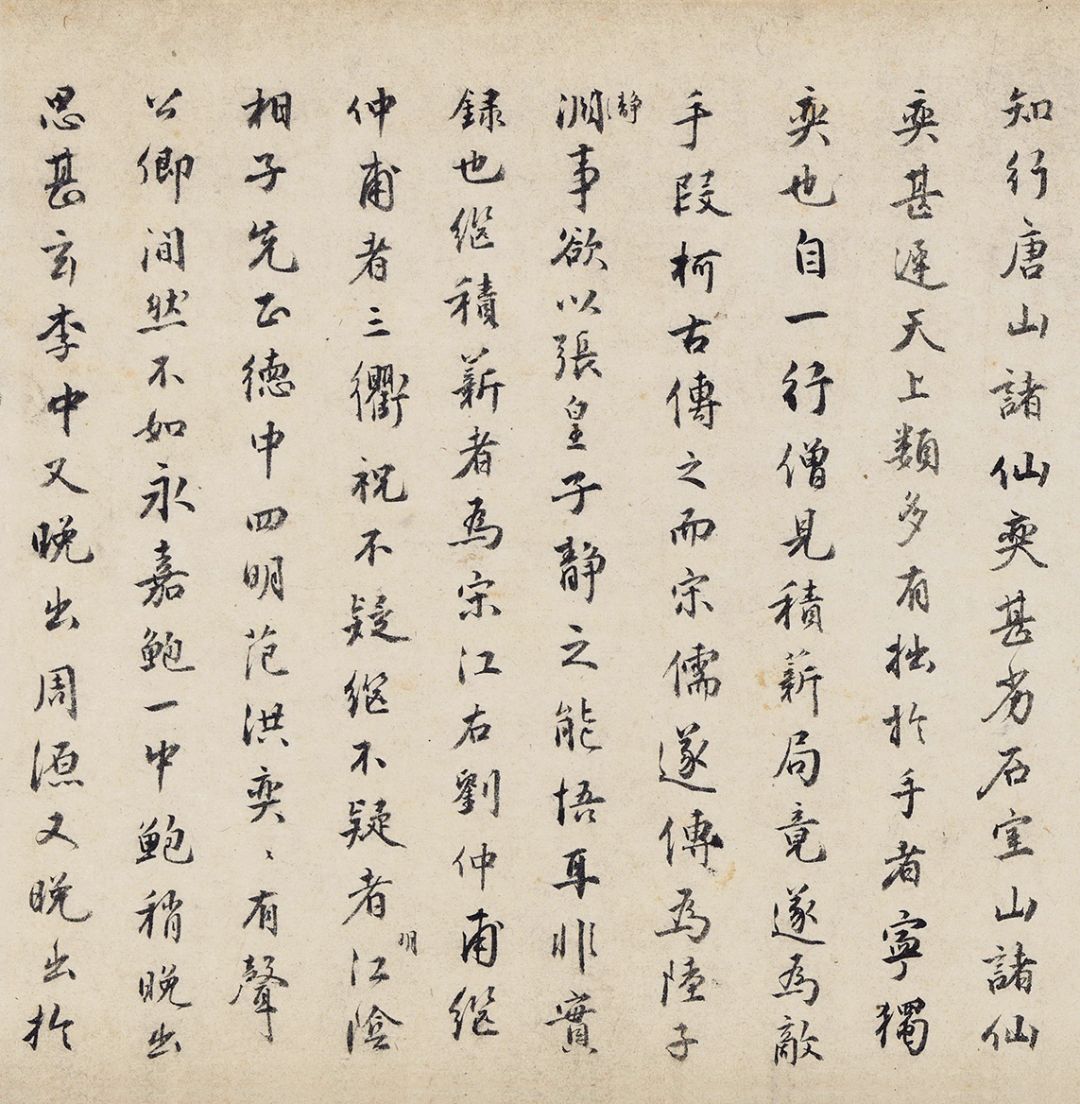 知行唐山諸仙奕甚劣石室山諸仙
奕甚遲天上類多有拙於手者寧獨
奕也自一行僧見積薪局竟遂為敵
手段柯古傳之而宋儒遂傳為陸子
靜
淵事欲以張皇子靜之能悟耳非實
録也継積薪者為宋江右劉仲甫継
仲甫者三衢祝不疑継不疑者
明
江陰
相子先正德中四明范洪奕〻有聲
公卿間然不如永嘉鮑一中鮑稍晚出
思甚玄李中又晚出周源又晚出於